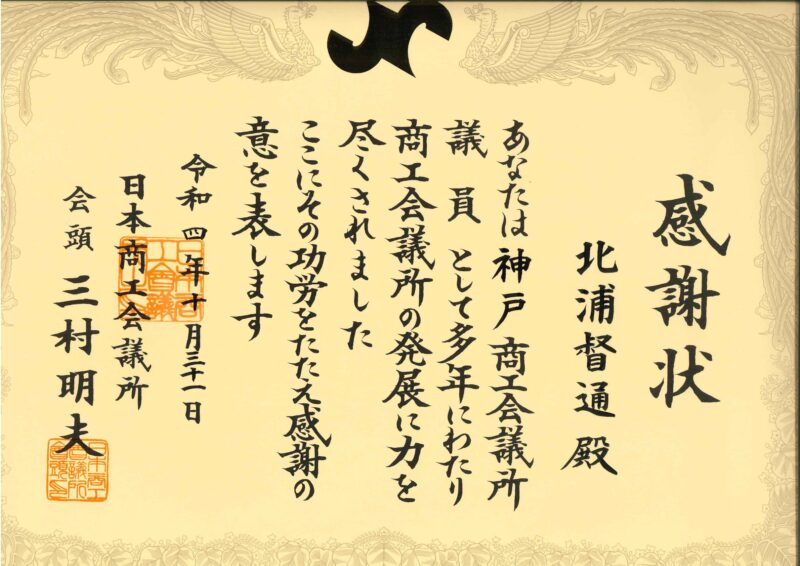 感謝状
北浦督通 殿
あなたは神戸商工会議所
議員として多年にわたり
商工会議所の発展に力を
尽くされました
ここにその功労をたたえ感謝の
意を表します
令和四年十月三十一日
日本商工会議所
会頭 三村明夫